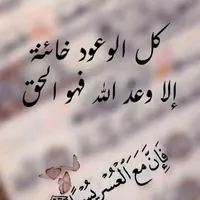 كل الوعود خائنة
إلا وعد الله فهو الحق
فَإِنَّ مَعَ الْعُسْرِ يُسْرًا